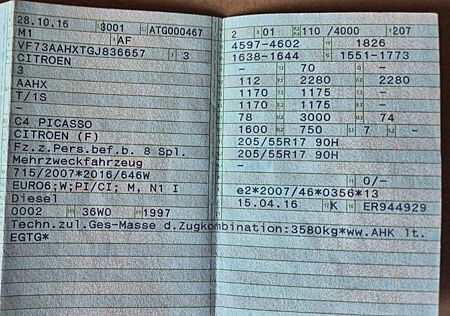 28.10.16 3001 ATG000467
M1 AF
VF73AAHXTGJ836657 3
CITROEN
3
AAHX
T/1S
–
C4 PICASSO
CITROEN (F)
Fz.z.Pers.bef.b. 8 Spl.
Mehrzweckfahrzeug
715/2007*2016/646W
EURO6;W;PI/CI; M, N1 I
Diesel
0002 36W0 1997
2 01 110 /4000 207
4597-4602 1826
1638-1644 1551-1773
– 70 –
112 2280 2280
1170 1175 –
1170 1175 –
78 3000 74
1600 750 7 –
205/55R17 90H
205/55R17 90H
–
0/–
e2*2007/46*0356*13
15.04.16 K ER944929
Techn.zul.Ges-Masse d.Zugkombination:3580kg*ww.AHK lt.
EGTG*